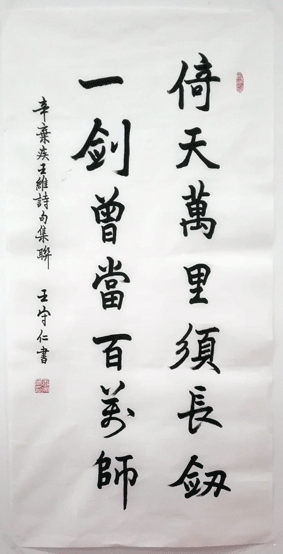 倚天萬里須長劔
一劍曾當百萬師
辛棄疾王維詩句集聯
王守仁書